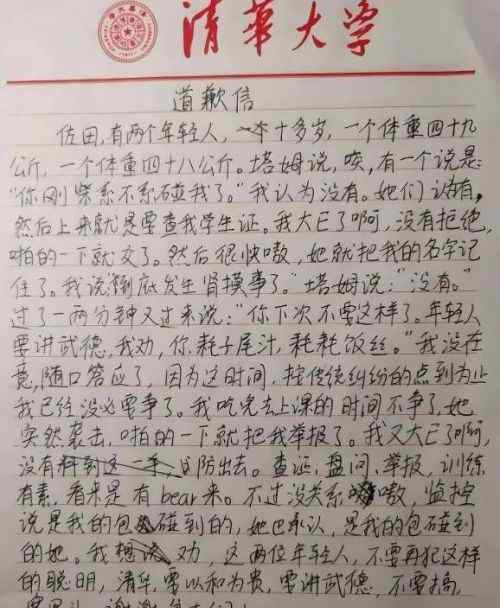 清華大学
道歉信
佐田,有两个年轻人,一个十多岁,一个体重四十九
公斤,一个体重四十八公斤。塔姆说,唉,有一个说是
"你刚柴系不系碰我了。"我认为没有。她们认为有,
然后上来就是要查我学生证。我大E了啊,没有拒绝,
啪的一下就交了。然后很快嗷,她就把我的名字记
住了。我说到底发生肾摸事了。"塔姆说:"没有。"
过了一两分钟又过来说:"你下次不要这样了。年轻人
要讲武德,我劝,你耗子尾汁,耗耗饭丝。"我没在
意,随口答应了,因为这时间,按传统纠纷的点到为止
我已经没必要争了。我吃完去上课的时间不争了,她
突然袭击,啪的一下就把我举报了。我又大E了啊,
没有防出去。查证、盘问、举报,训练
有素,看来是有bear来。不过没关系嗷,监控
说是我的包碰到的,她也承认,是我的包碰到
的她。我劝,这两位年轻人,不要再犯这样
的聪明,清华要以和为贵,要讲武德,不要搞,